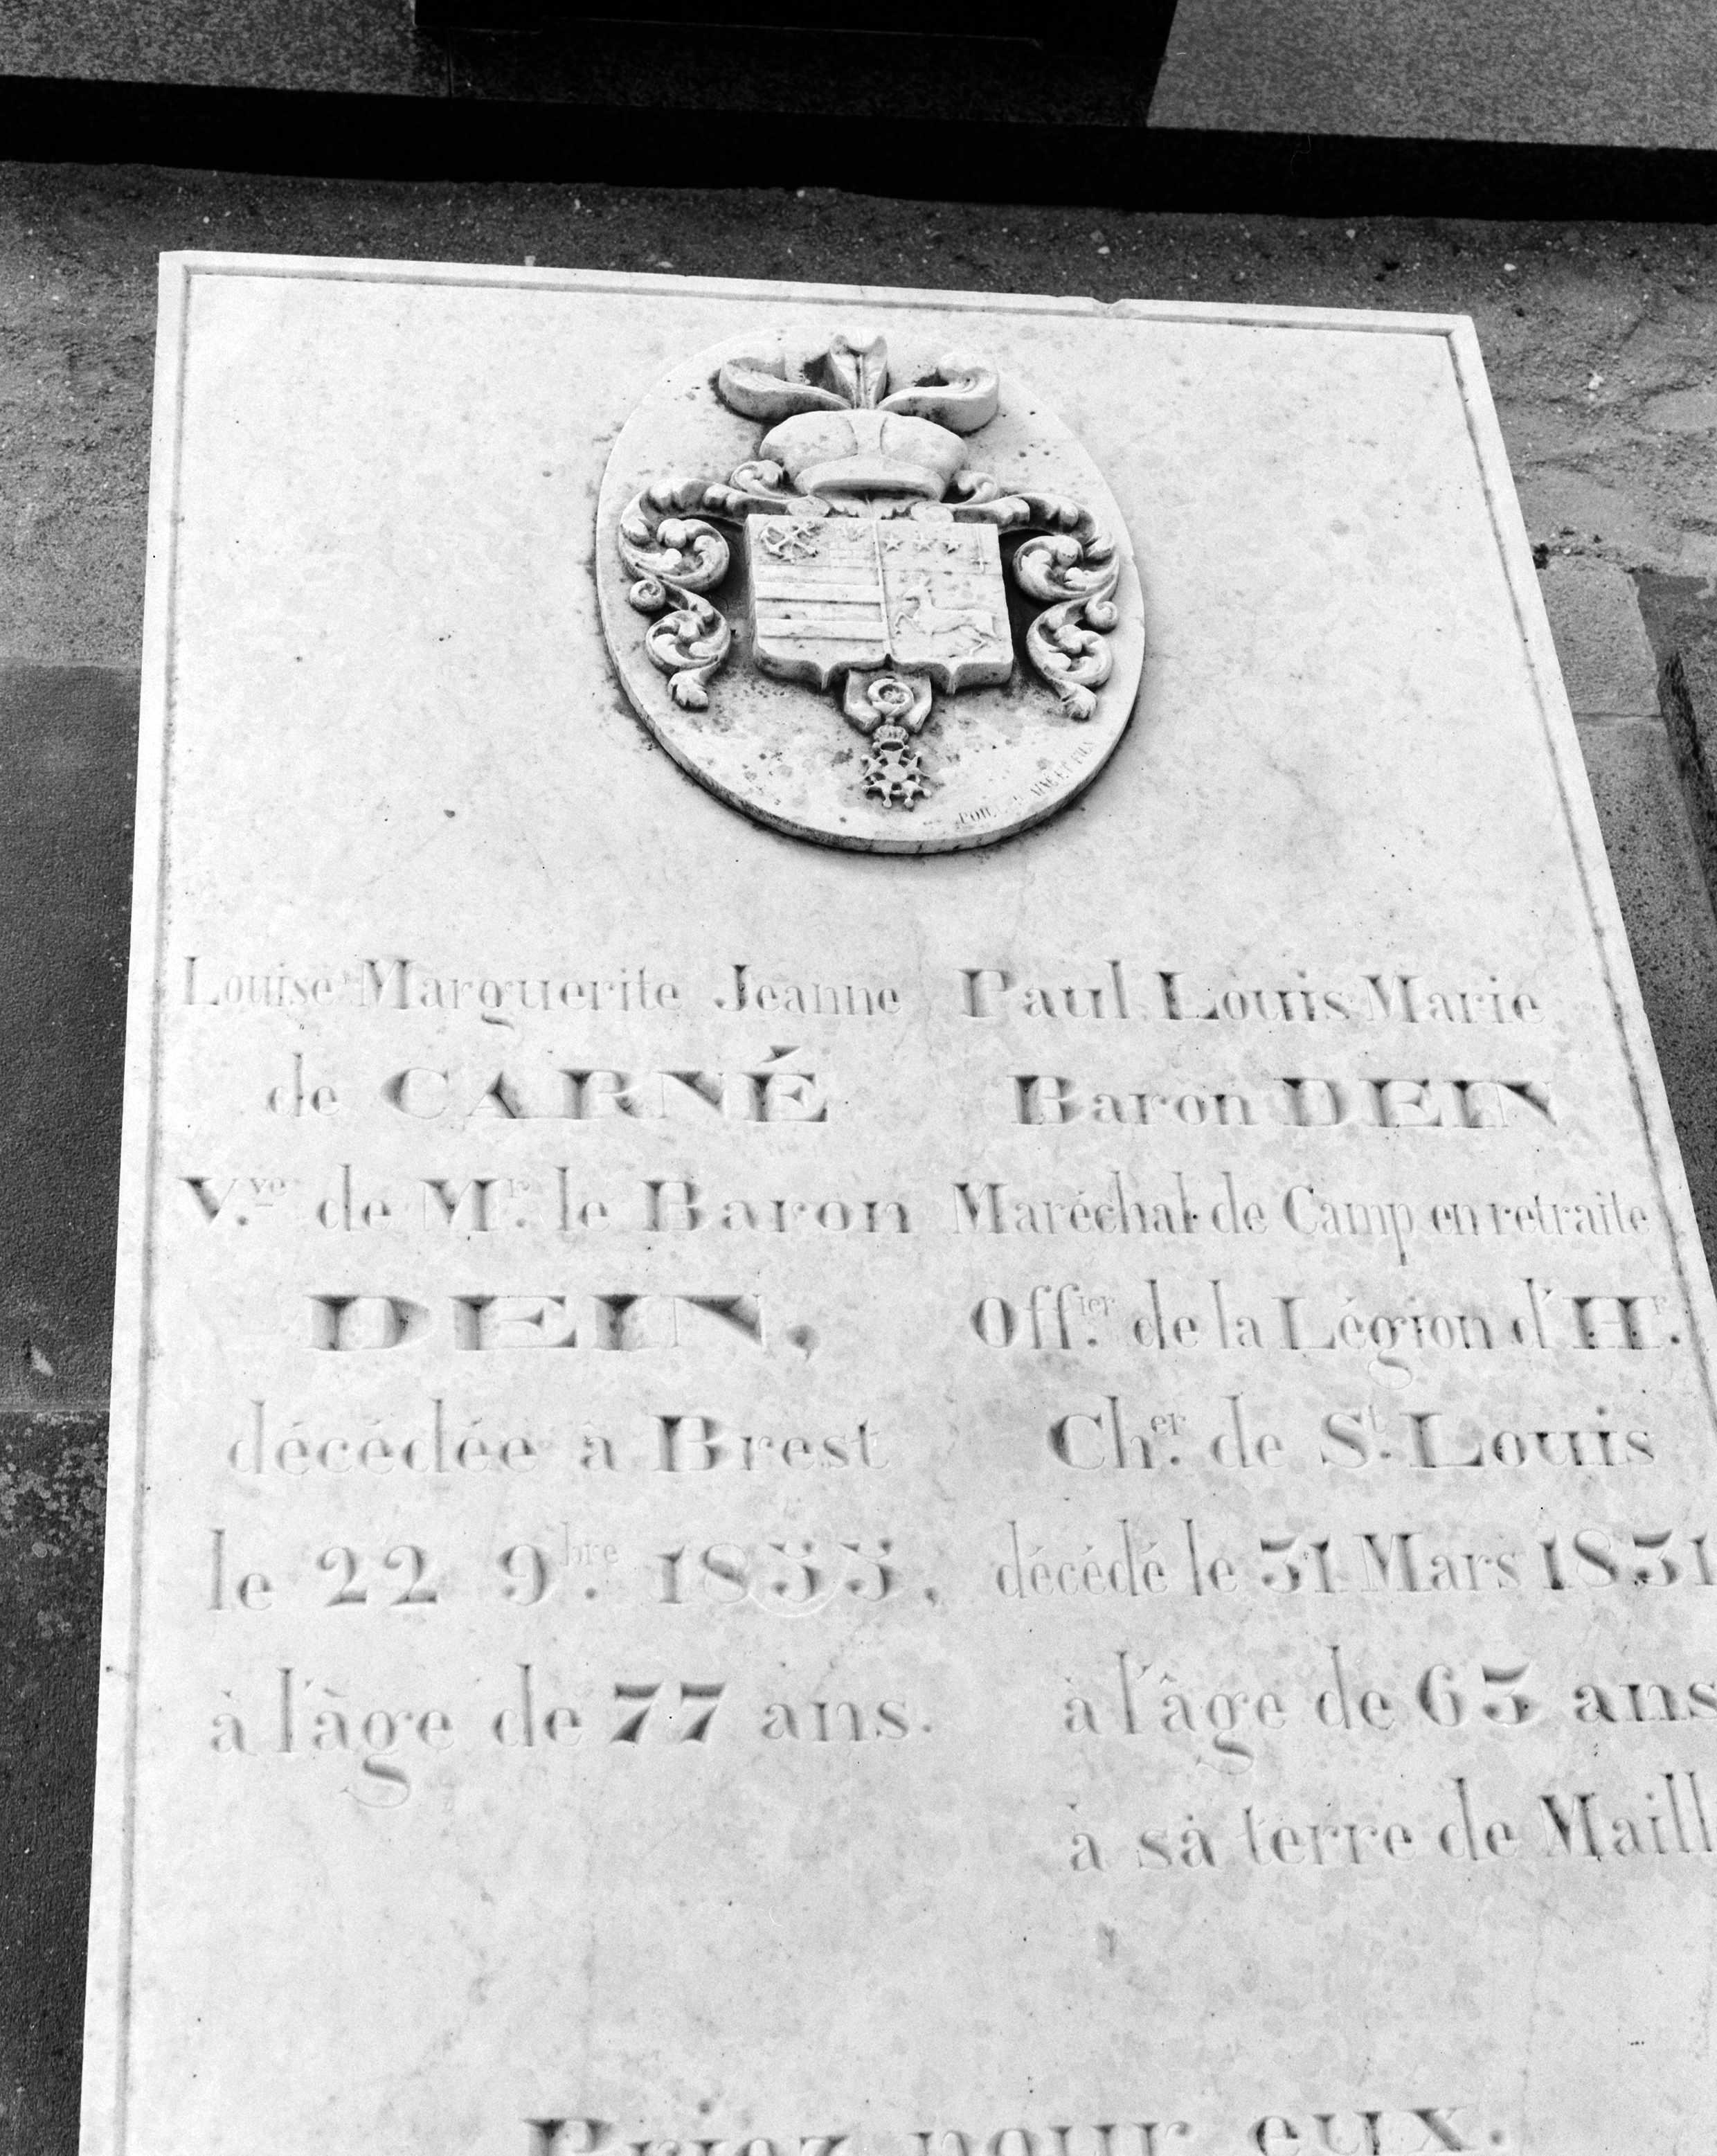 AINÉ ET FILS
Louise Marguerite Jeanne
de CARNÉ
V.ve de Mr. le Baron
DEIN,
décédée à Brest
le 22 9.bre 1855,
à l'âge de 77 ans.
Paul Louis Marie
Baron DEIN
Maréchal de Camp en retraite
Off.ier de la Légion d'Hr.
Ch.er de St. Louis
décédé le 31 Mars 1831
à l'âge de 63 ans
à sa terre de Maill
Priez pour eux.